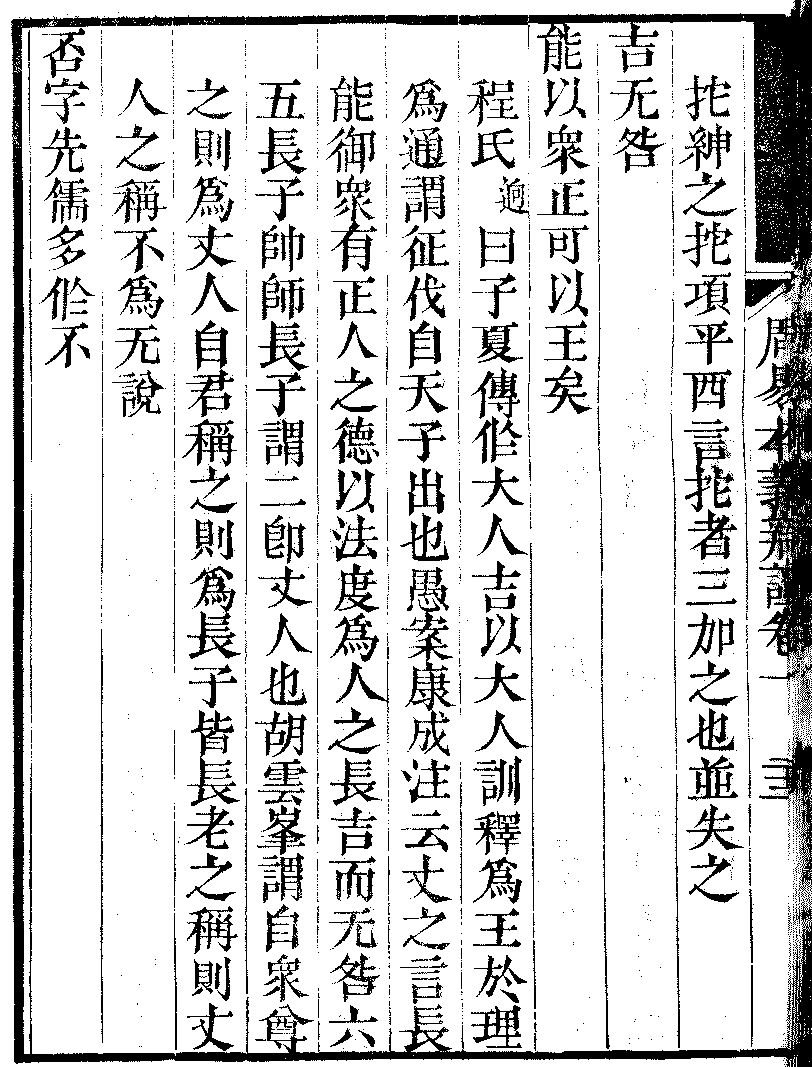 周易本義辨證卷一
拕紳之拕項平西言拕者三加之也並失之
吉无咎
能以衆正可以王矣
程氏迥曰子夏傳作大人吉以大人訓釋爲王於理
爲通謂征伐自天子出也愚案康成注云丈之言長
能御衆有正人之德以法度爲人之長吉而无咎六
五長子帥師長子謂二卽丈人也胡雲峯謂自衆尊
之則爲丈人自君稱之則爲長子皆長老之稱則丈
人之稱不爲无說
否字先儒多作不